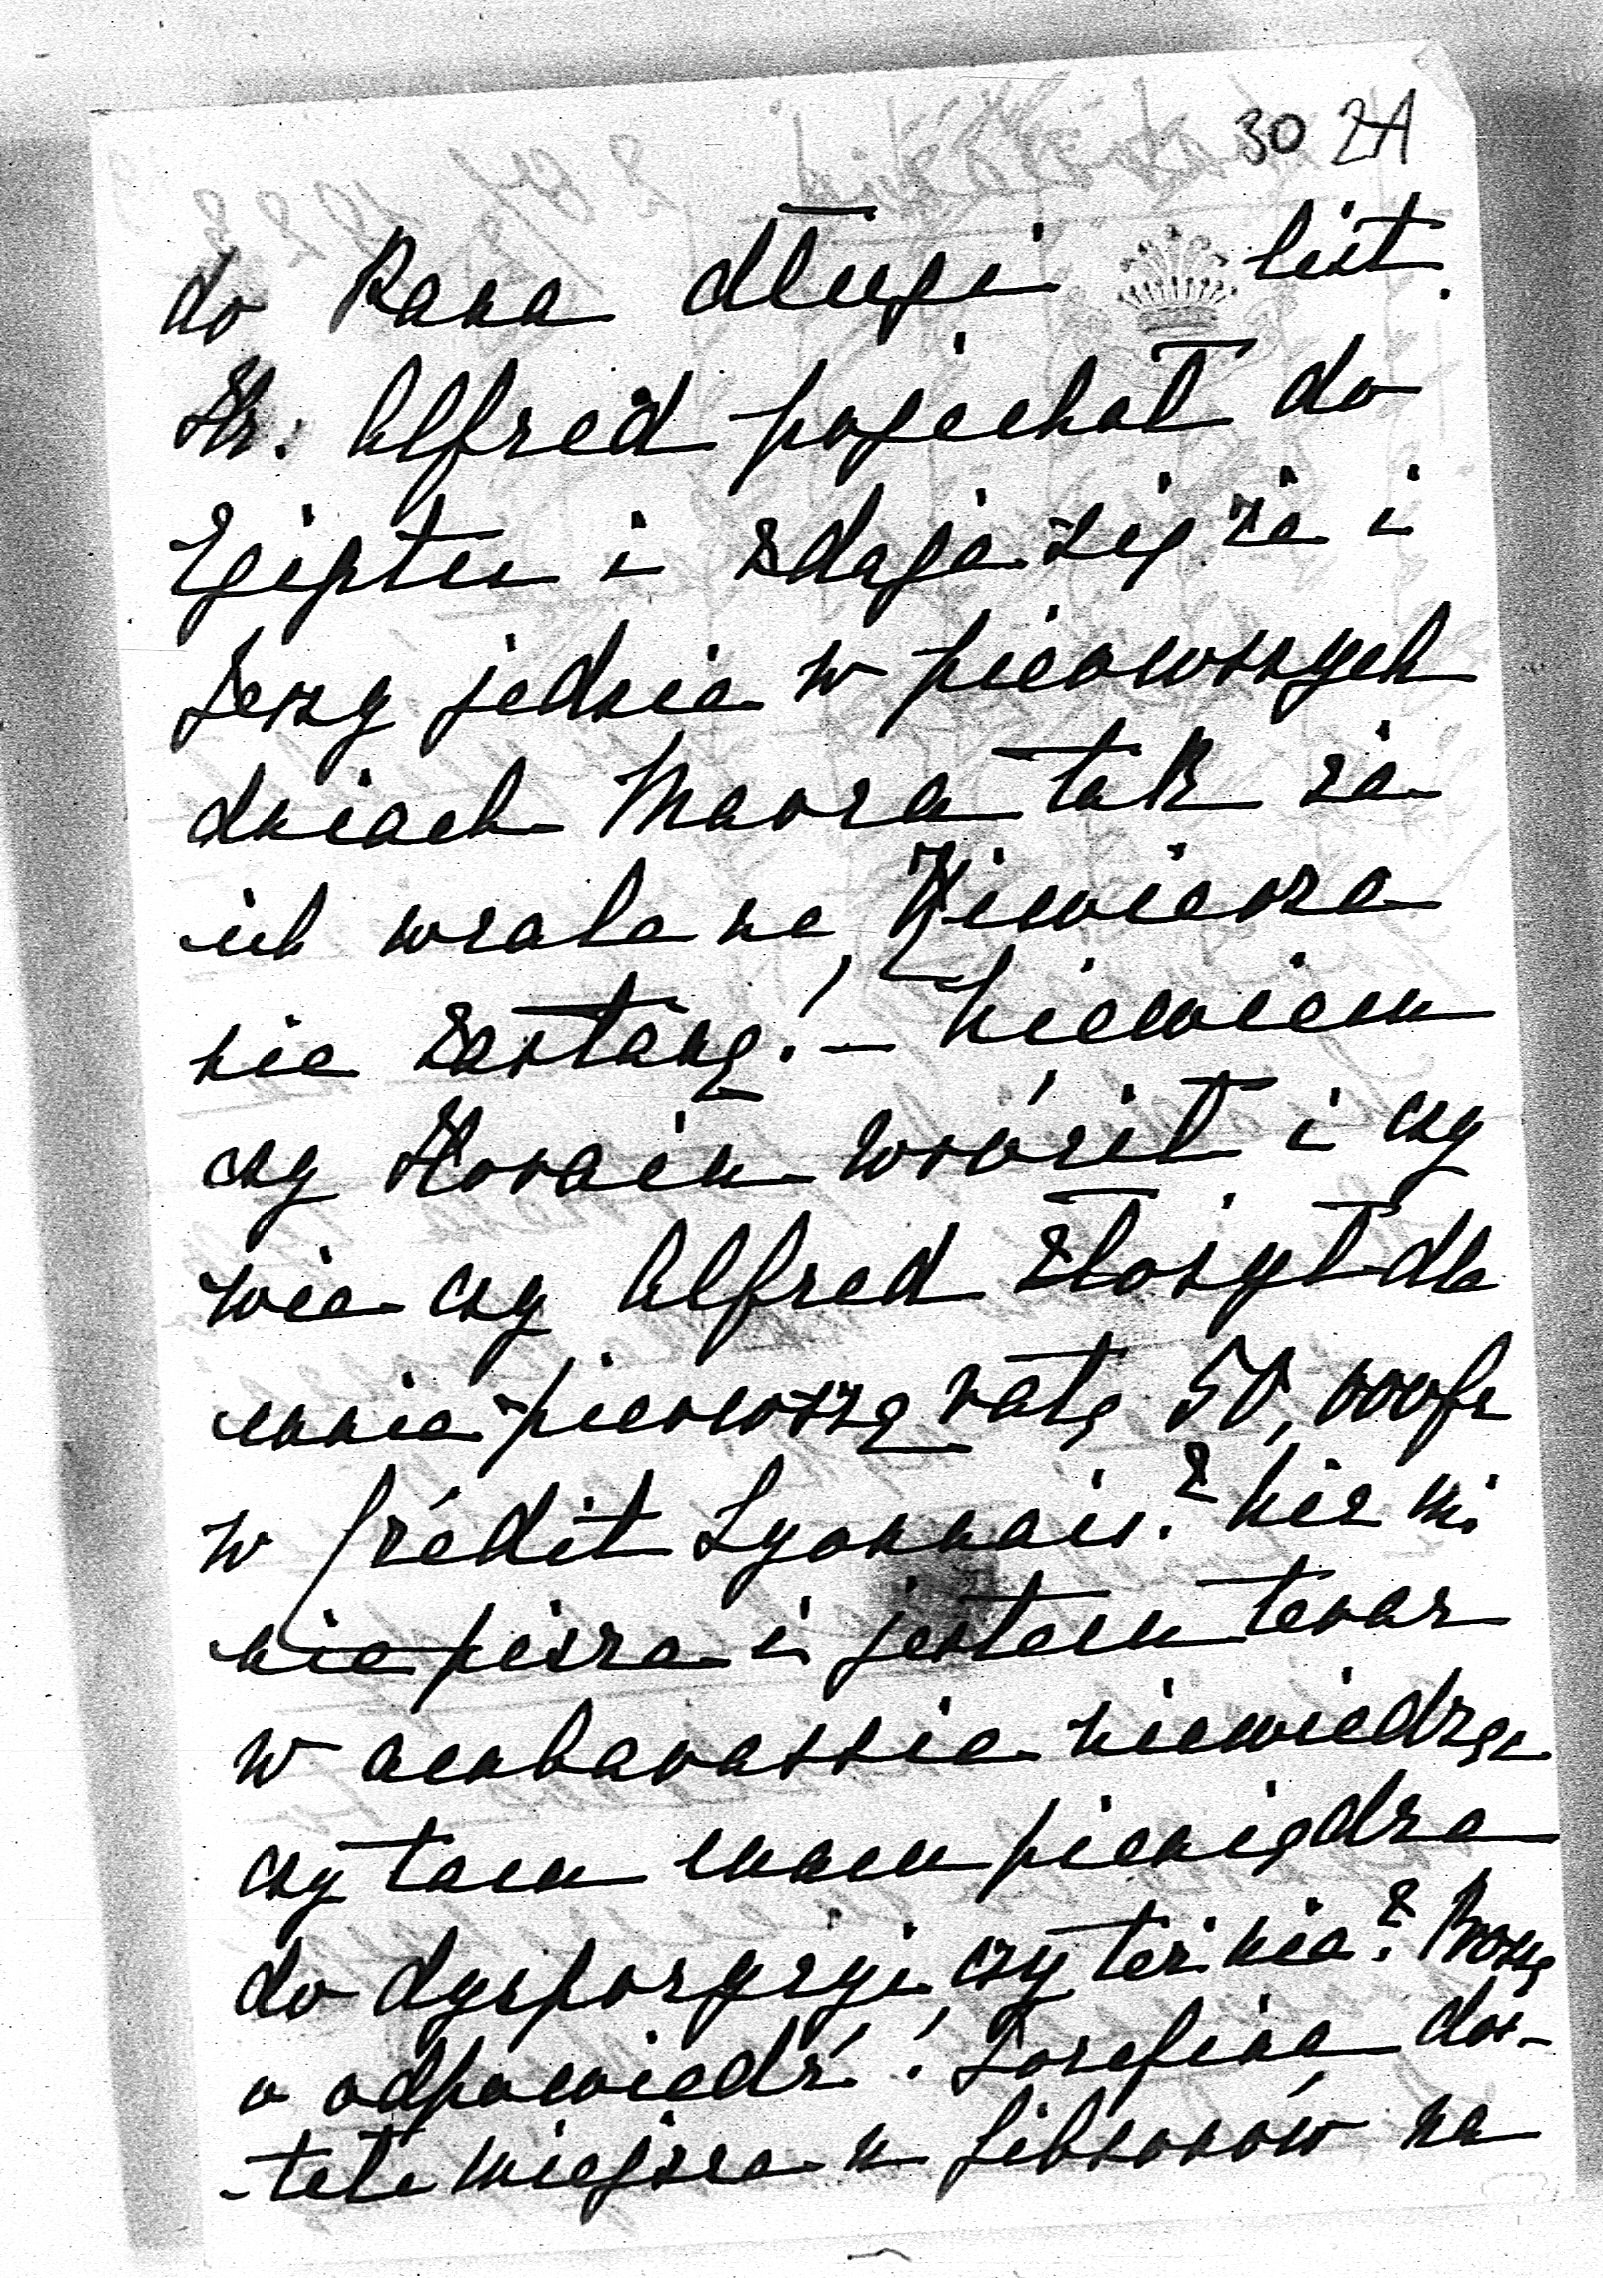 30 2A
do Pana długi list.
Hr: Alfred pojechał do
Egiptu i zdaje się że i
Jerzy jedzie w pierwszych
dniach Marca tak że
ich wcale na
nie zastanę! – Niewiem
czy Horain wrócił i czy
wie czy Alfred złożył dla
mnie pierwszą ratę 50,000 fr
w Crédit Lyonnais? Nic mi
nie pisze i jestem teraz
w ambarassie niewiedząc
czy tam mam pieniądze
do dyspozycji, czy też nie? Proszę
o odpowiedź! Józefina dos-
-tała miejsce u Gibsonów na